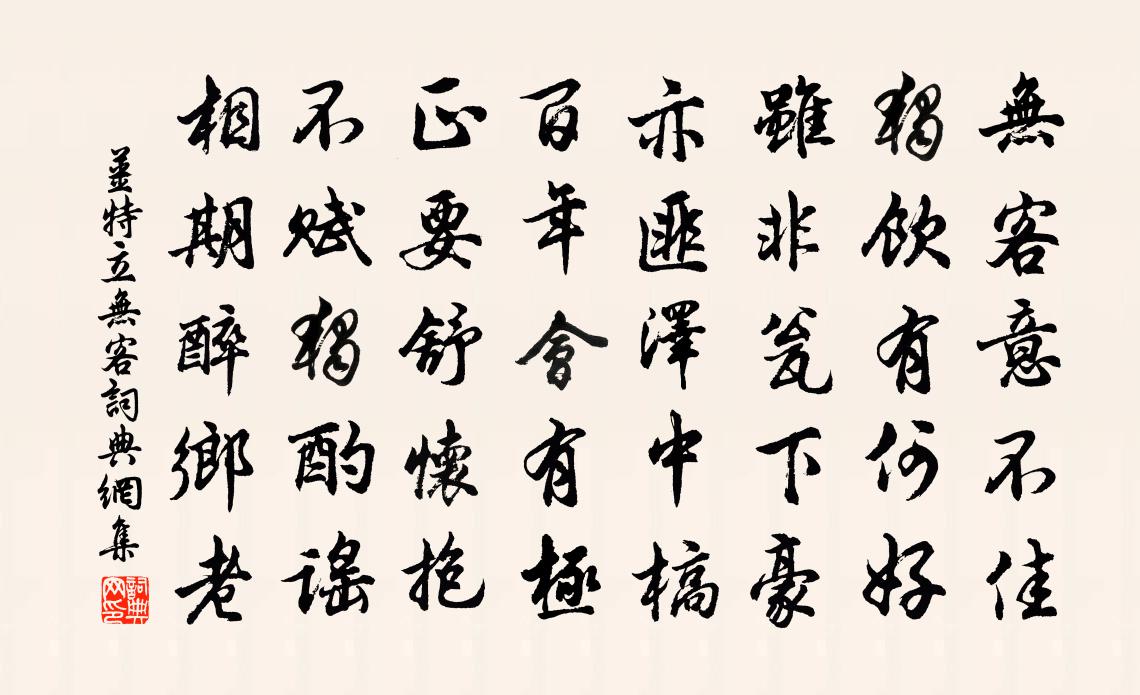 無客意不佳
獨飲有何好
雖非瓮下豪
亦匪澤中槁
百年會有極
正要舒懷抱
不賦獨酌謠
相期醉鄉老
姜特立無客詞典網集
詞典网印